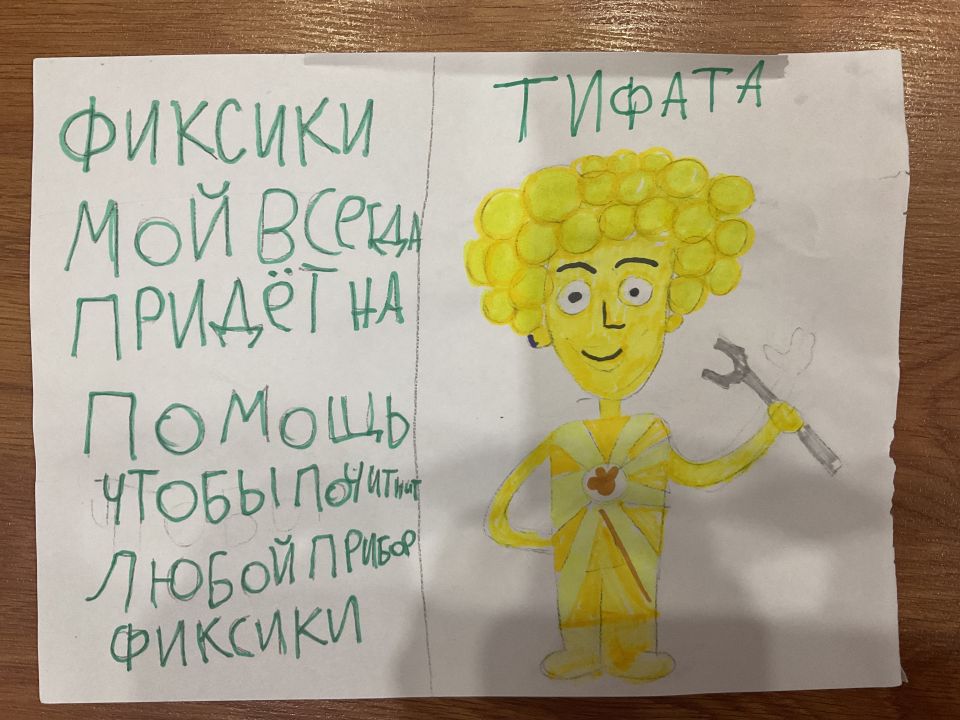 ФИКСИКИ
МОЙ ВСЕГДА
ПРИДЁТ НА
ПОМОЩЬ
ЧТОБЫ
ЛЮБОЙ ПРИБОР
ФИКСИКИ
ТИФАТА